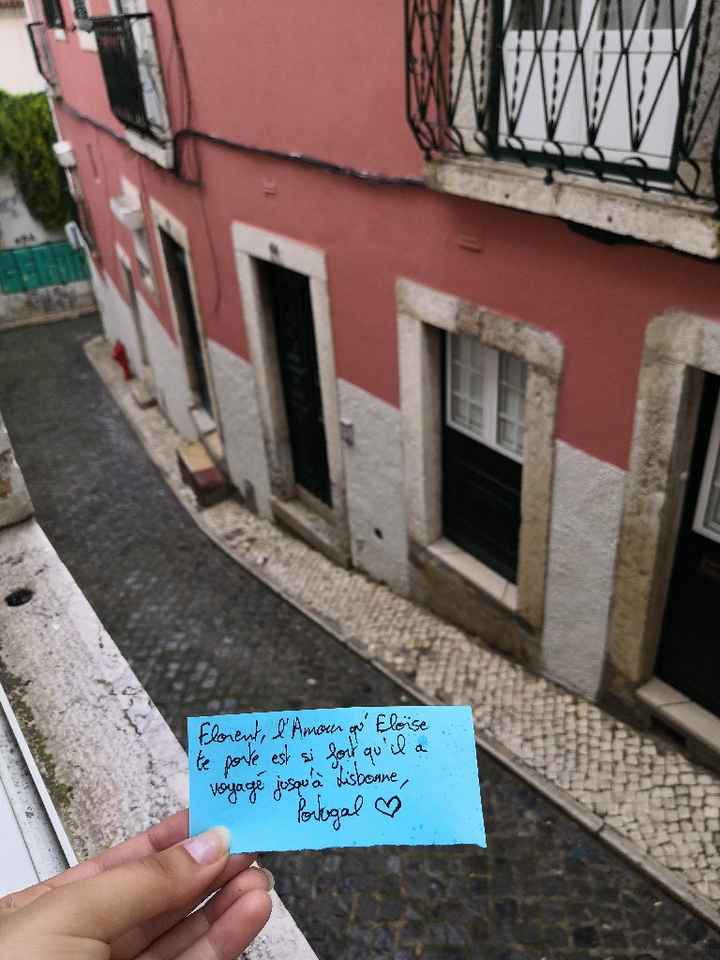 Florent, l'Amour qu'Eloïse
te porte est si fort qu'il a
voyagé jusqu'à Lisbonne,
Portugal ♡